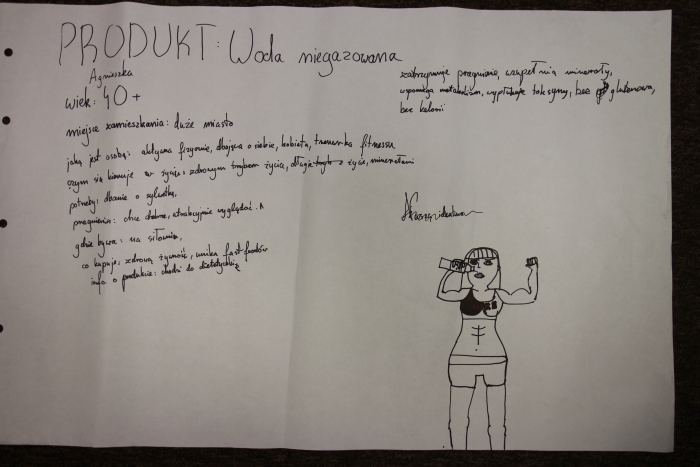 PRODUKT: Woda niegazowana
Agnieszka
wiek: 40+
miejsce zamieszkania: duże miasto
jaką jest osobą: aktywna fizycznie, dbająca o siebie, kobieta, trenerka fitnessu
czym się kieruje w życiu: zdrowym trybem życia, życie, minerałami
potrzeby: dbanie o sylwetkę,
pragnienia: chce dobrze, atrakcyjnie wyglądać.
gdzie bywa: na siłownię,
co kupuje: zdrową żywność, unika fast-foodów
info o produkcie: chodzi do dietetyczki
zatrzymuje pragnienie, uzupełnia minerały,
wspomaga metabolizm, wypłukuje toksyny, bez glutenowa,
bez kalorii